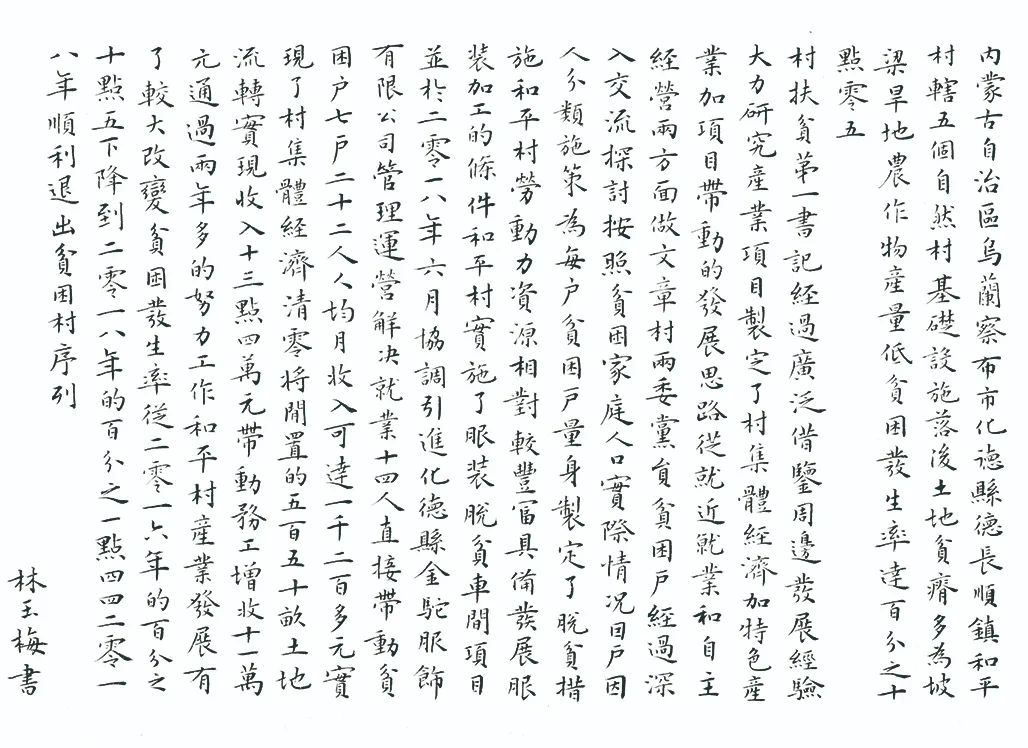 內蒙古自治區烏蘭察布市化德縣德長順鎮和平
村轄五個自然村基礎設施落後土地貧瘠多為坡
梁旱地農作物產量低貧困發生率達百分之十
點零五
村扶貧第一書記經過廣泛借鑒周邊發展經驗
大力研究產業項目製定了村集體經濟加特色產
業加項目帶動的發展思路從就近就業和自主
經營兩方面做文章村兩委黨員貧困戶經過深
入交流探討按照貧困家庭人口實際情況因戶因
人分類施策為每戶貧困戶量身製定了脫貧措
施和平村勞動力資源相對較豐富具備發展服
裝加工的條件和平村實施了服裝脫貧車間項目
並於二零一八年六月協調引進化德縣金駝服飾
有限公司管理運營解決就業十四人直接帶動貧
困户七戶二十二人人均月收入可達一千二百多元實
現了村集體經濟清零將閒置的五百五十畝土地
流轉實現收入十三點四萬元帶動務工增收十一萬
元通過兩年多的努力工作和平村產業發展有
了較大改變貧困發生率從二零一六年的百分之
十點五下降到二零一八年的百分之一點四四二零一
八年順利退出貧困村序列
林玉梅書